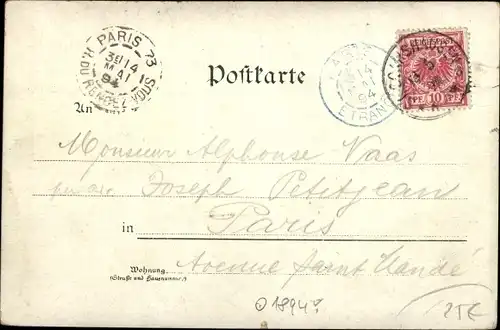 PARIS 73
R. DU RENDEZ-VOUS
3E 14
MAI
94
Postkarte
PARIS
14
94
ETRANGER
10
An
Monsieur Alphonse Vaas
Joseph Petitjean
in Paris
Wohnung
(Straße und Hausnummer)
Avenue Saint Mandé
1894
25€